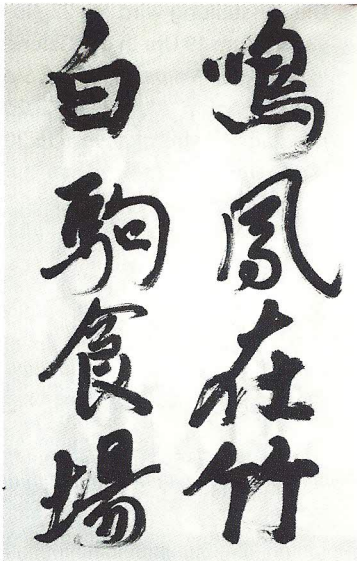 鳴鳳在竹
白駒食場